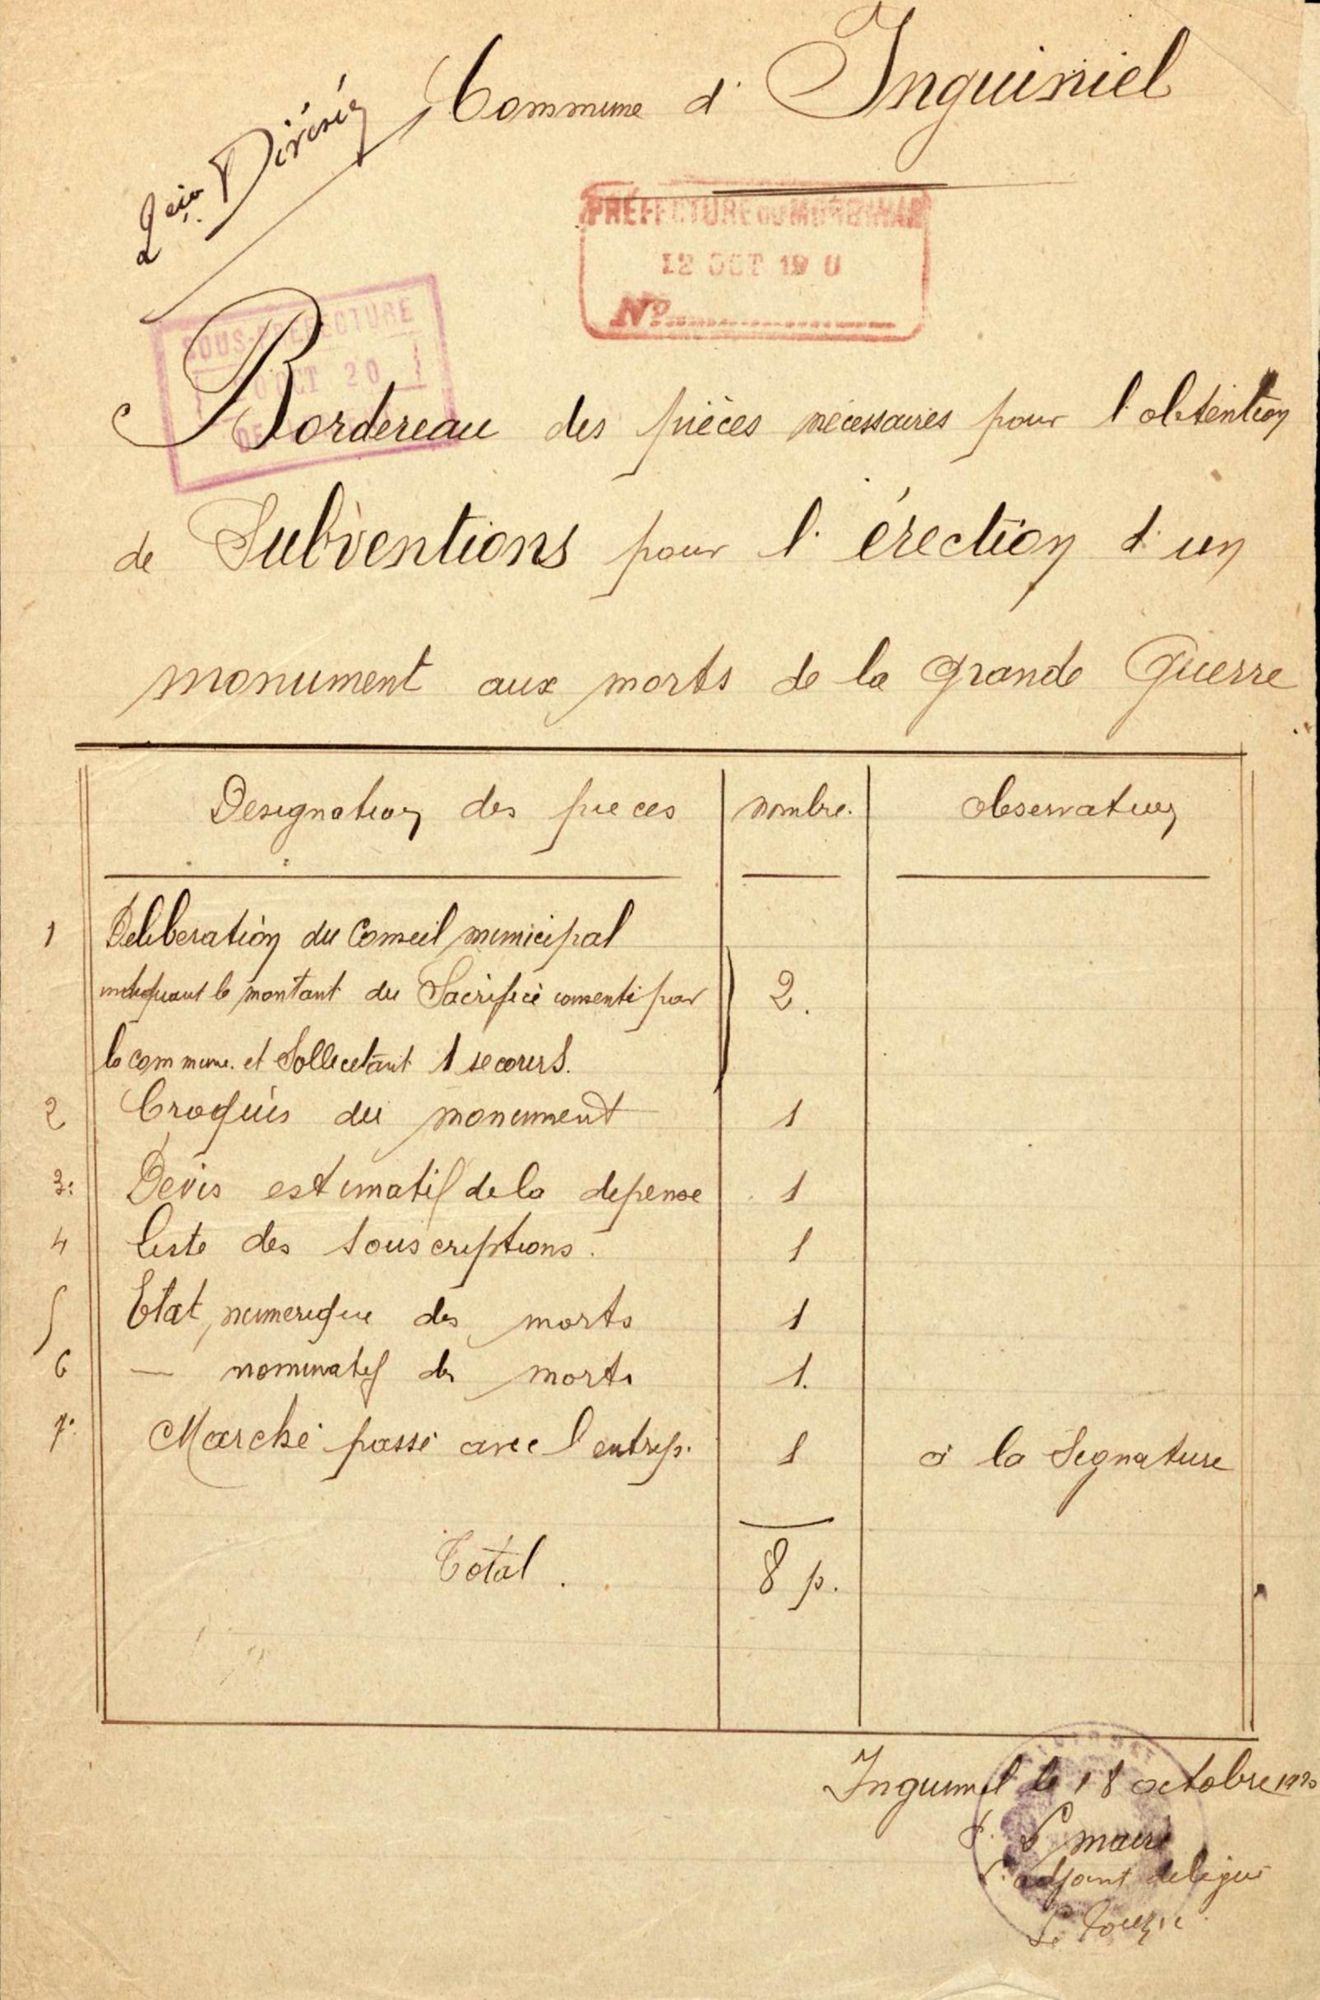 Commune d' Inguiniel
2eie Division
PRÉFECTURE DU MORBIHAN
12 OCT 19 0
No
SOUS-PRÉFECTURE
OCT 20
Bordereau des pièces nécessaires pour l'obtention
de Subventions pour l'érection d'un
monument aux morts de la grande Guerre
Designation des pieces nombre. observation
1 Deliberation du Conseil municipal
indiquant le montant du Sacrifice consenti par 2.
la commune. et Sollicitant 1 secours.
2 Croquis du monument 1
3: Devis estimatif de la depense 1
4 liste des souscriptions. 1
5 Etat numerique des morts 1
6 — nominatif des morts 1.
7: Marché passé avec l'entrep. 1 à la Signature
Total. 8 p.
Inguiniel le 18 octobre 1920
P. le maire
l'adjoint delegué